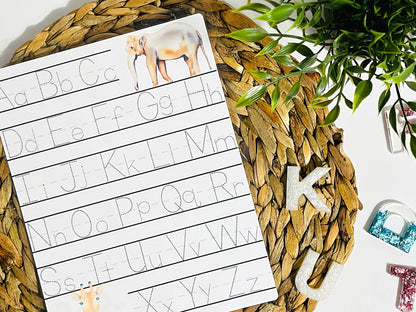 Aa Bb Cc
Dd Ee Ff Gg Hh
Ii Jj Kk Ll Mm
Nn Oo Pp Qq Rr
Ss Tt Uu Vv Ww
Xx Yy Zz
K
J
P
T